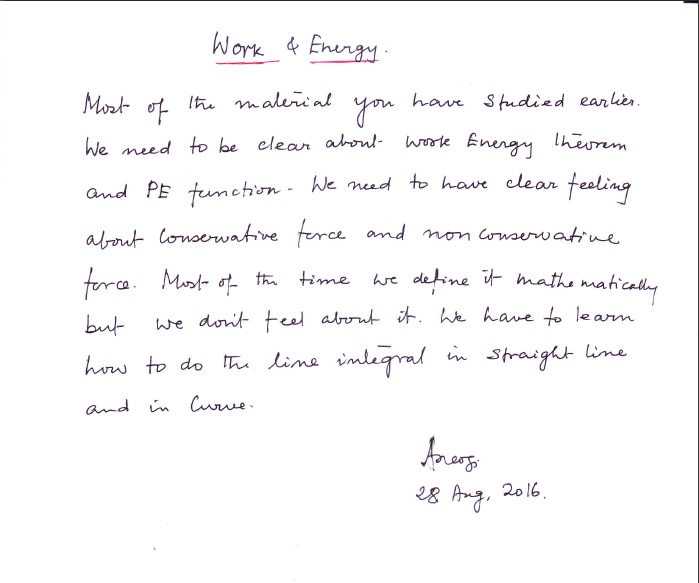 Work & Energy.
Most of the material you have studied earlier.
We need to be clear about work Energy theorem
and PE function - We need to have clear feeling
about Conservative force and non conservative
force. Most of the time we define it mathematically
but we don't feel about it. We have to learn
how to do the line integral in straight line
and in Curve.
28 Aug, 2016.